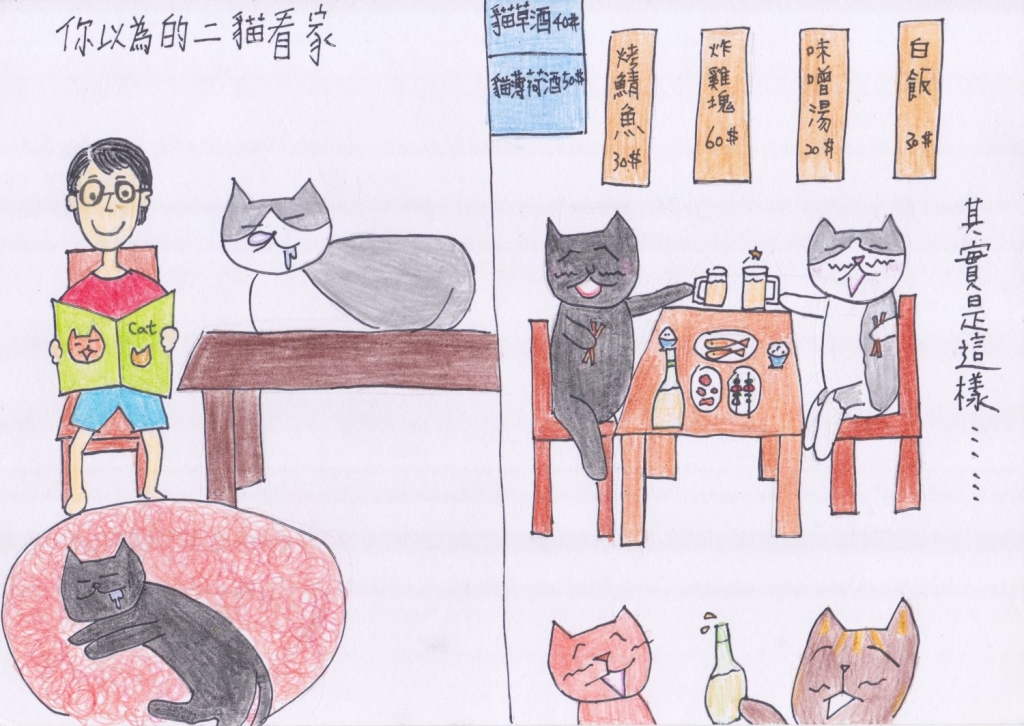 你以為的二貓看家
Cat
貓草酒40#
貓薄荷酒50#
烤鯖魚30#
炸雞塊60#
味噌湯20#
白飯30#
其實是這樣……